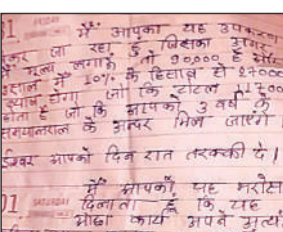 31 FRIDAY मैं आपका यह उपकरण
कर जा रहा हूं जिसका अगर
मूल्य लगाके तो 90,000 है और
साल में 10% के हिसाब से 27000
ब्याज होगा जो कि टोटल 117000
होता है जो कि आपको 3 वर्ष के
समयान्तराल के अन्दर मिल जाएंगे
ईश्वर आपको दिन रात तरक्की दे।
मैं आपको, यह भरोसा
01 SATURDAY दिलाता हूं कि यह
ओछा कार्य अपने